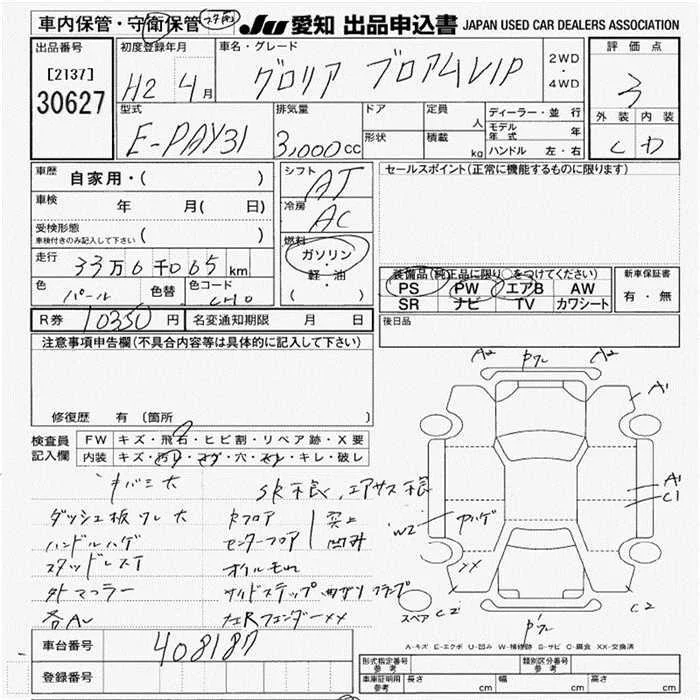 車内保管・守衛保管
JU 愛知 出品申込書 JAPAN USED CAR DEALERS ASSOCIATION
出品番号
[2137]
30627
初度登録年月
H2 4月
車名・グレード
グロリア ブロアムVIP
2WD・4WD
評価点
3
型式
E-PAY31
排気量
3,000cc
ドア
形状
定員 人
積載 kg
ディーラー・並行
モデル年式 年
ハンドル 左・右
外装 内装
C D
車歴 自家用・( )
車検 年 月( 日)
受検形態
車検付きのみ記入して下さい ( )
走行 33万6千065km
色 パール 色替 色コード
シフト AT
冷房 AC
燃料
ガソリン・軽油
( )
セールスポイント(正常に機能するものに限ります)
装備品(純正品に限り○をつけてください)
PS PW エアB AW
SR ナビ TV カワシート
新車保証書
有・無
後日品
R券 10350円 名変通知期限 月 日
注意事項申告欄(不具合内容等は具体的に記入して下さい)
修復歴 有 (箇所
検査員記入欄
FW キズ・飛石・ヒビ割・リペア跡・X要
内装 キズ・汚レ・コゲ・穴・スレ・キレ・破レ
SR不良、エアサス不良
ダッシュ板ワレ大
ハンドルハゲ
スタッドレスT
外マフラー
RフロアI
センターフロア
突上
凹み
オイルもれ
サイドステップ曲ガリ
左Rフェンダー××
A2 A2
A1
A1
C1
W2
××
スペア C2 C2
A-キズ E-エクボ U-凹み W-補修跡 S-サビ C-腐食 XX-交換済
車台番号 408187
登録番号
形式指定番号 参考
類別区分番号 参考
車庫証明用 参考 長さ cm 幅 cm 高さ cm